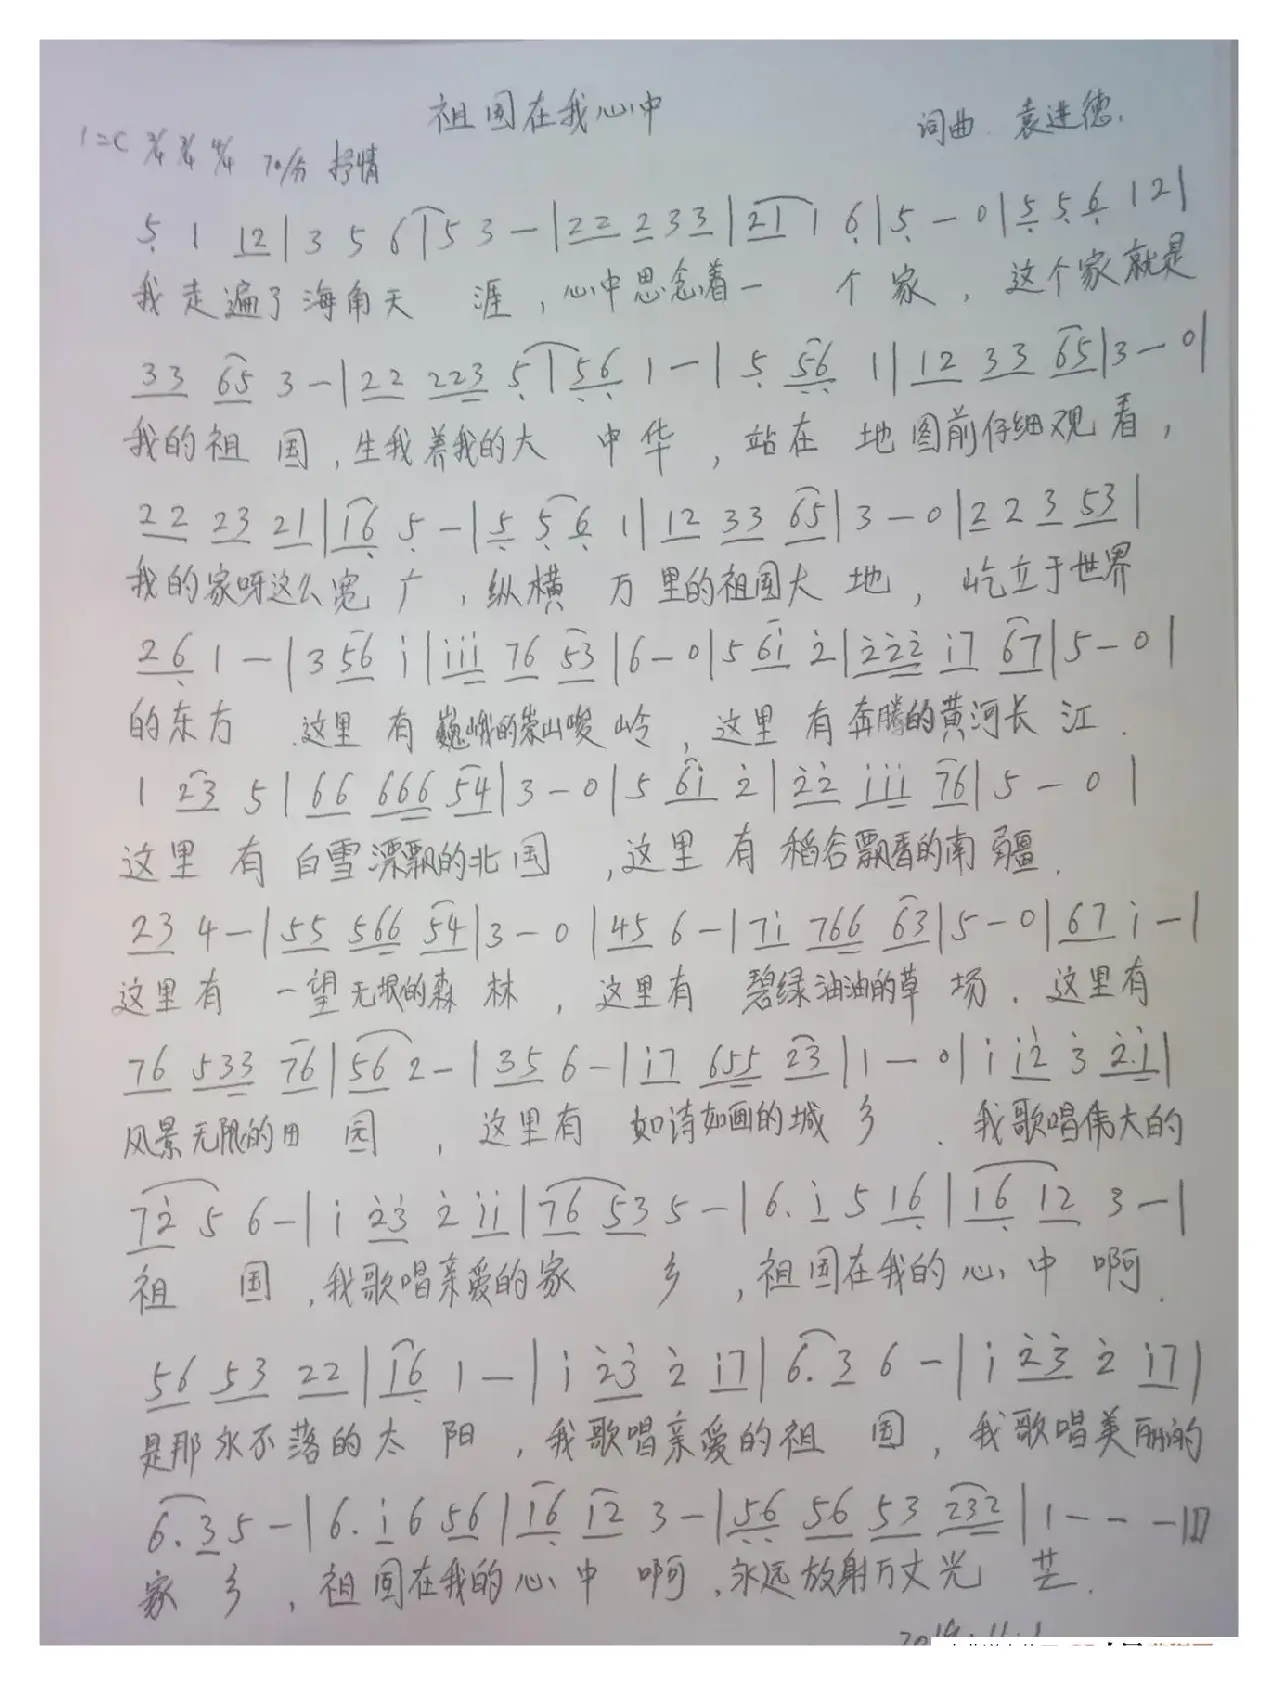 祖国在我心中
词曲 袁进德.
1=C 2/4 3/4 4/4 70/分 抒情
5 1 12|3 5 6 1|5 3 -|22 233|21 1 6|5 - 0|5 5 6 12|
我走遍了海角天涯,心中思念着一个家,这个家就是
33 65 3 -|22 223 5 1|56 1 -|5 56 1|12 33 65|3 - 0|
我的祖国,生我养我的大中华,站在地图前仔细观看,
22 23 21|16 5 -|5 56 1|12 33 65|3 - 0|22 3 53|
我的家呀这么宽广,纵横万里的祖国大地,屹立于世界
26 1 -|3 56 i|iii 76 53|6 - 0|5 6i 2|222 i7 67|5 - 0|
的东方.这里有巍峨的崇山峻岭,这里有奔腾的黄河长江.
1 23 5|66 666 54|3 - 0|5 6i 2|22 iii 76|5 - 0|
这里有白雪漂飘的北国,这里有稻谷飘香的南疆.
23 4 -|55 566 54|3 - 0|45 6 -|7i 766 63|5 - 0|67 i -|
这里有一望无垠的森林,这里有碧绿油油的草场.这里有
76 533 76|56 2 -|35 6 -|i7 655 23|1 - 0|i i2 3 2.i|
风景无限的田园,这里有如诗如画的城乡.我歌唱伟大的
72 5 6 -|i 23 2 ii|76 53 5 -|6. i 5 16|16 12 3 -|
祖国,我歌唱亲爱的家乡,祖国在我的心中啊.
56 53 22|16 1 -|i 23 2 i7|6. 3 6 -|i 23 2 i7|
是那永不落的太阳,我歌唱亲爱的祖国,我歌唱美丽的
6. 3 5 -|6. i 6 56|16 12 3 -|56 56 53 232|1 - - -||
家乡,祖国在我的心中啊,永远放射万丈光芒.
2019.11.1